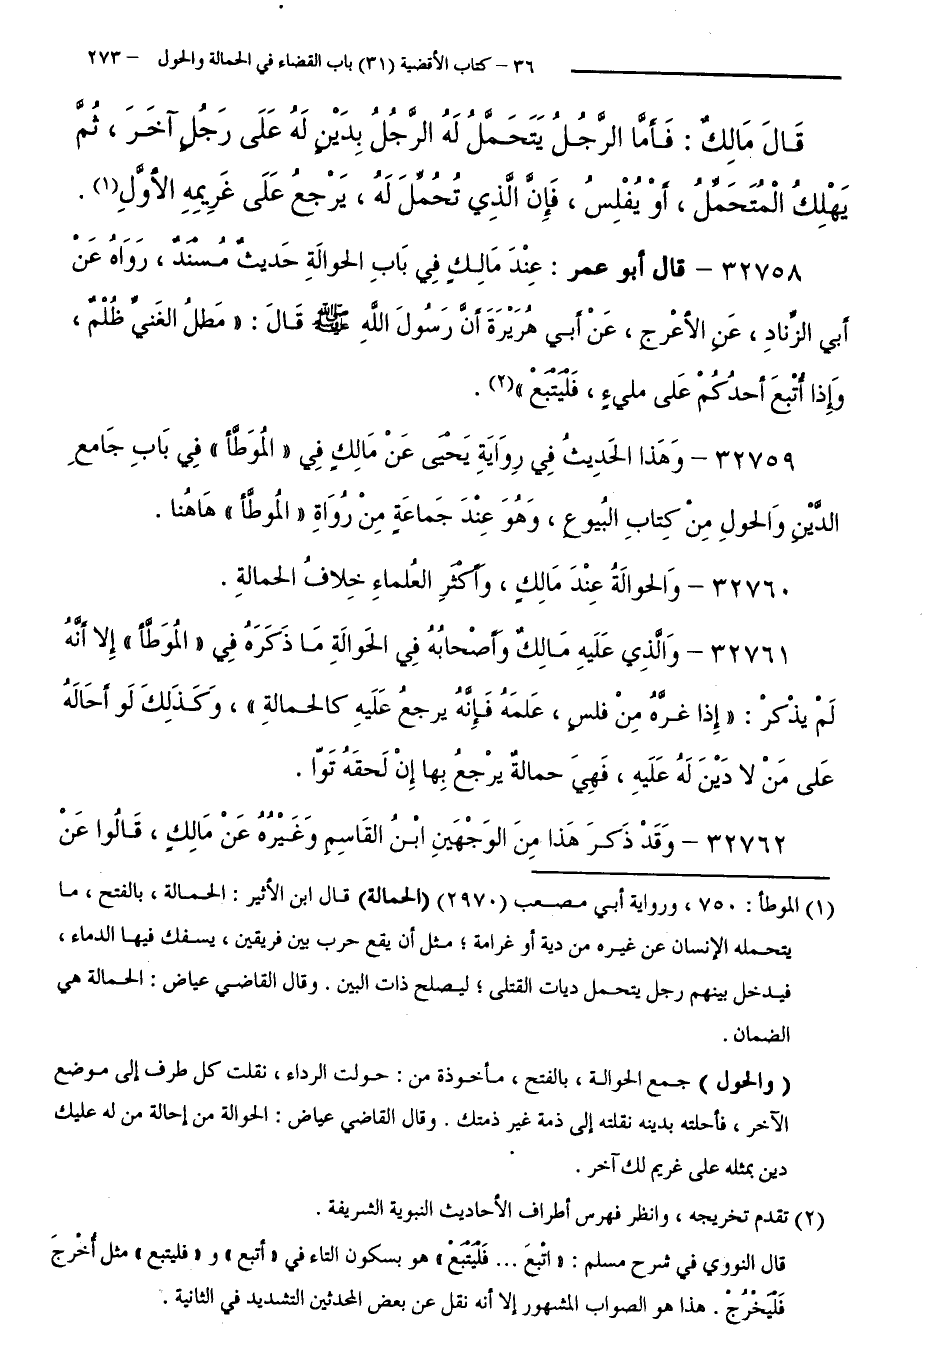 ٣٦ – كتاب الأقضية (٣١) باب القضاء في الحمالة والحول – ٢٧٣
قَالَ مَالِكٌ : فَأَمَّا الرَّجُلُ يَتَحَمَّلُ لَهُ الرَّجُلُ بِدَيْنٍ لَهُ عَلَى رَجُلٍ آخَرَ ، ثُمَّ
يَهْلِكُ الْمُتَحَمِّلُ ، أَوْ يُفْلِسُ ، فَإِنَّ الَّذِي تُحُمِّلَ لَهُ ، يَرْجِعُ عَلَى غَرِيمِهِ الأَوَّلِ(١) .
٣٢٧٥٨ – قال أبو عمر : عِنْدَ مَالِكٍ فِي بَابِ الحَوَالَةِ حَدِيثٌ مُسْنَدٌ ، رَوَاهُ عَنْ
أَبِي الزِّنَادِ ، عَنِ الأَعْرَجِ ، عَنْ أَبِي هُرَيْرَةَ أَنَّ رَسُولَ اللَّهِ ﷺ قَالَ : « مَطلُ الغَنيِّ ظُلْمٌ ،
وَإِذا أُتْبِعَ أحدُكُمْ عَلى مليءٍ ، فَلْيَتْبَعْ »(٢) .
٣٢٧٥٩ – وَهَذا الحَدِيثُ فِي رِوَايَةِ يَحْيَى عَنْ مَالِكٍ فِي « الْمُوَطَّأ » فِي بَابِ جَامعِ
الدَّيْنِ وَالحولِ مِنْ كِتابِ البُيوعِ ، وَهُوَ عِنْدَ جَمَاعَةٍ مِنْ رُوَاةِ « الْمُوطَّأ » هَاهُنا .
٣٢٧٦٠ – وَالحوالَةُ عِنْدَ مَالِكٍ ، وَأَكْثَرِ العُلماءِ خِلافُ الحمالةِ .
٣٢٧٦١ – وَالَّذِي عَلَيهِ مَالِكٌ وَأَصْحابُهُ فِي الحَوالَةِ مَا ذَكَرَهُ فِي « الْمُوَطَّأ » إِلا أَنَّهُ
لَمْ يذْكرْ : « إِذا غرَّهُ مِنْ فلسٍ ، عَلمَهُ فَإِنَّهُ يرجعُ عَلَيهِ كالحمالةِ » ، وَكَذَلِكَ لَو أَحَالَهُ
عَلى مَنْ لا دَيْنَ لَهُ عَلَيهِ ، فَهِيَ حمالةٌ يرْجعُ بِها إِنْ لَحقَهُ تَوًّا .
٣٢٧٦٢ – وَقَدْ ذَكَرَ هَذا مِنَ الوَجْهَينِ ابْنُ القَاسِمِ وَغَيْرُهُ عَنْ مَالِكٍ ، قَالُوا عَنْ
(١) الموطأ : ٧٥٠ ، ورواية أبي مصعب (٢٩٧٠) (الحمالة) قال ابن الأثير : الحمالة ، بالفتح ، ما
يتحمله الإنسان عن غيره من دية أو غرامة ؛ مثل أن يقع حرب بين فريقين ، يسفك فيها الدماء ،
فيدخل بينهم رجل يتحمل ديات القتلى ؛ ليصلح ذات البين . وقال القاضي عياض : الحمالة هي
الضمان .
( والحول ) جمع الحوالة ، بالفتح ، مأخوذة من : حولت الرداء ، نقلت كل طرف إلى موضع
الآخر ، فأحلته بدينه نقلته إلى ذمة غير ذمتك . وقال القاضي عياض : الحوالة من إحالة من له عليك
دين بمثله على غريم لك آخر .
(٢) تقدم تخريجه ، وانظر فهرس أطراف الأحاديث النبوية الشريفة .
قال النووي في شرح مسلم : « اتْبِعَ ... فَلْيَتْبَعْ » هو بسكون التاء في « أتبع » و « فليتبع » مثل أُخْرِجَ
فَلْيَخْرُجْ . هذا هو الصواب المشهور إلا أنه نقل عن بعض المحدثين التشديد في الثانية .